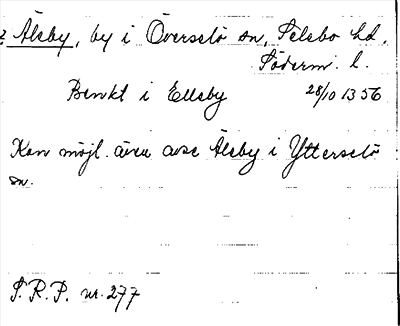 ? Älsby, by i Överselö sn, Selebo hd,
Söderm. l.
Benkt i Ellsby 28/10 1356
Kan möjl. även avse Älsby i Ytterselö
sn.
S. R. P. nr. 277